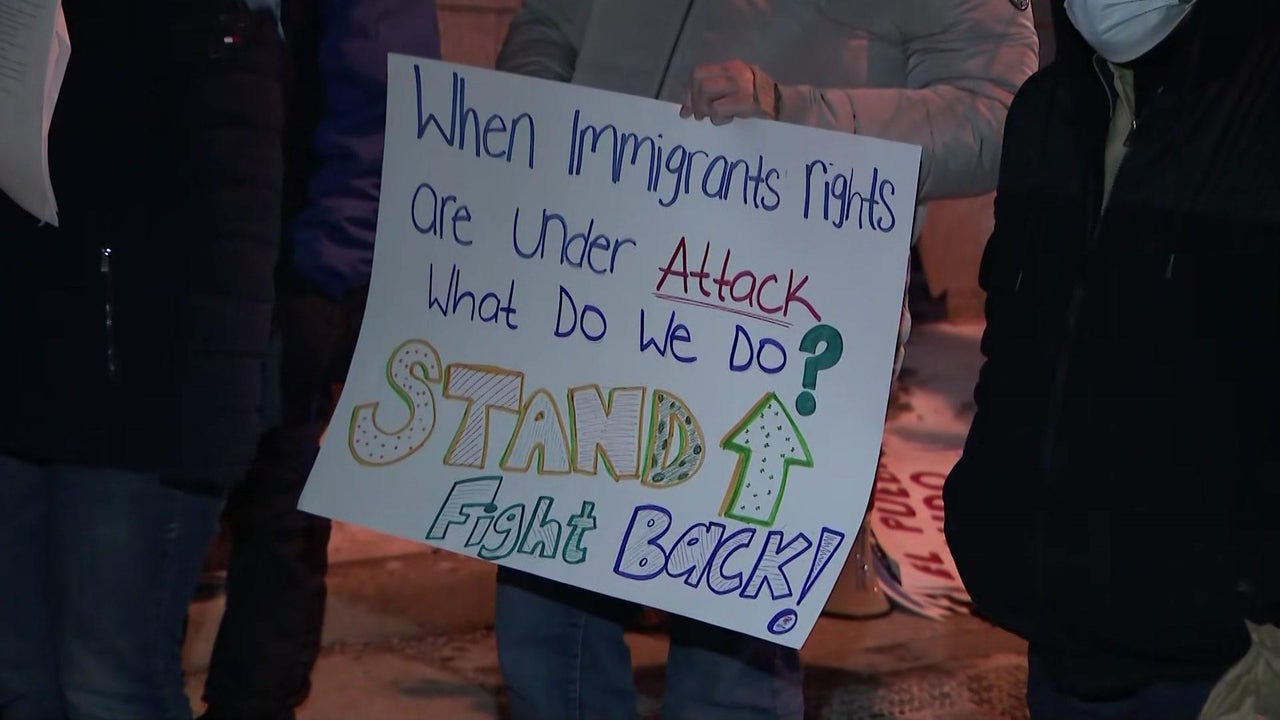 When Immigrants rights
are under Attack
What Do We Do?
STAND
Fight Back!
EL PUEBLO